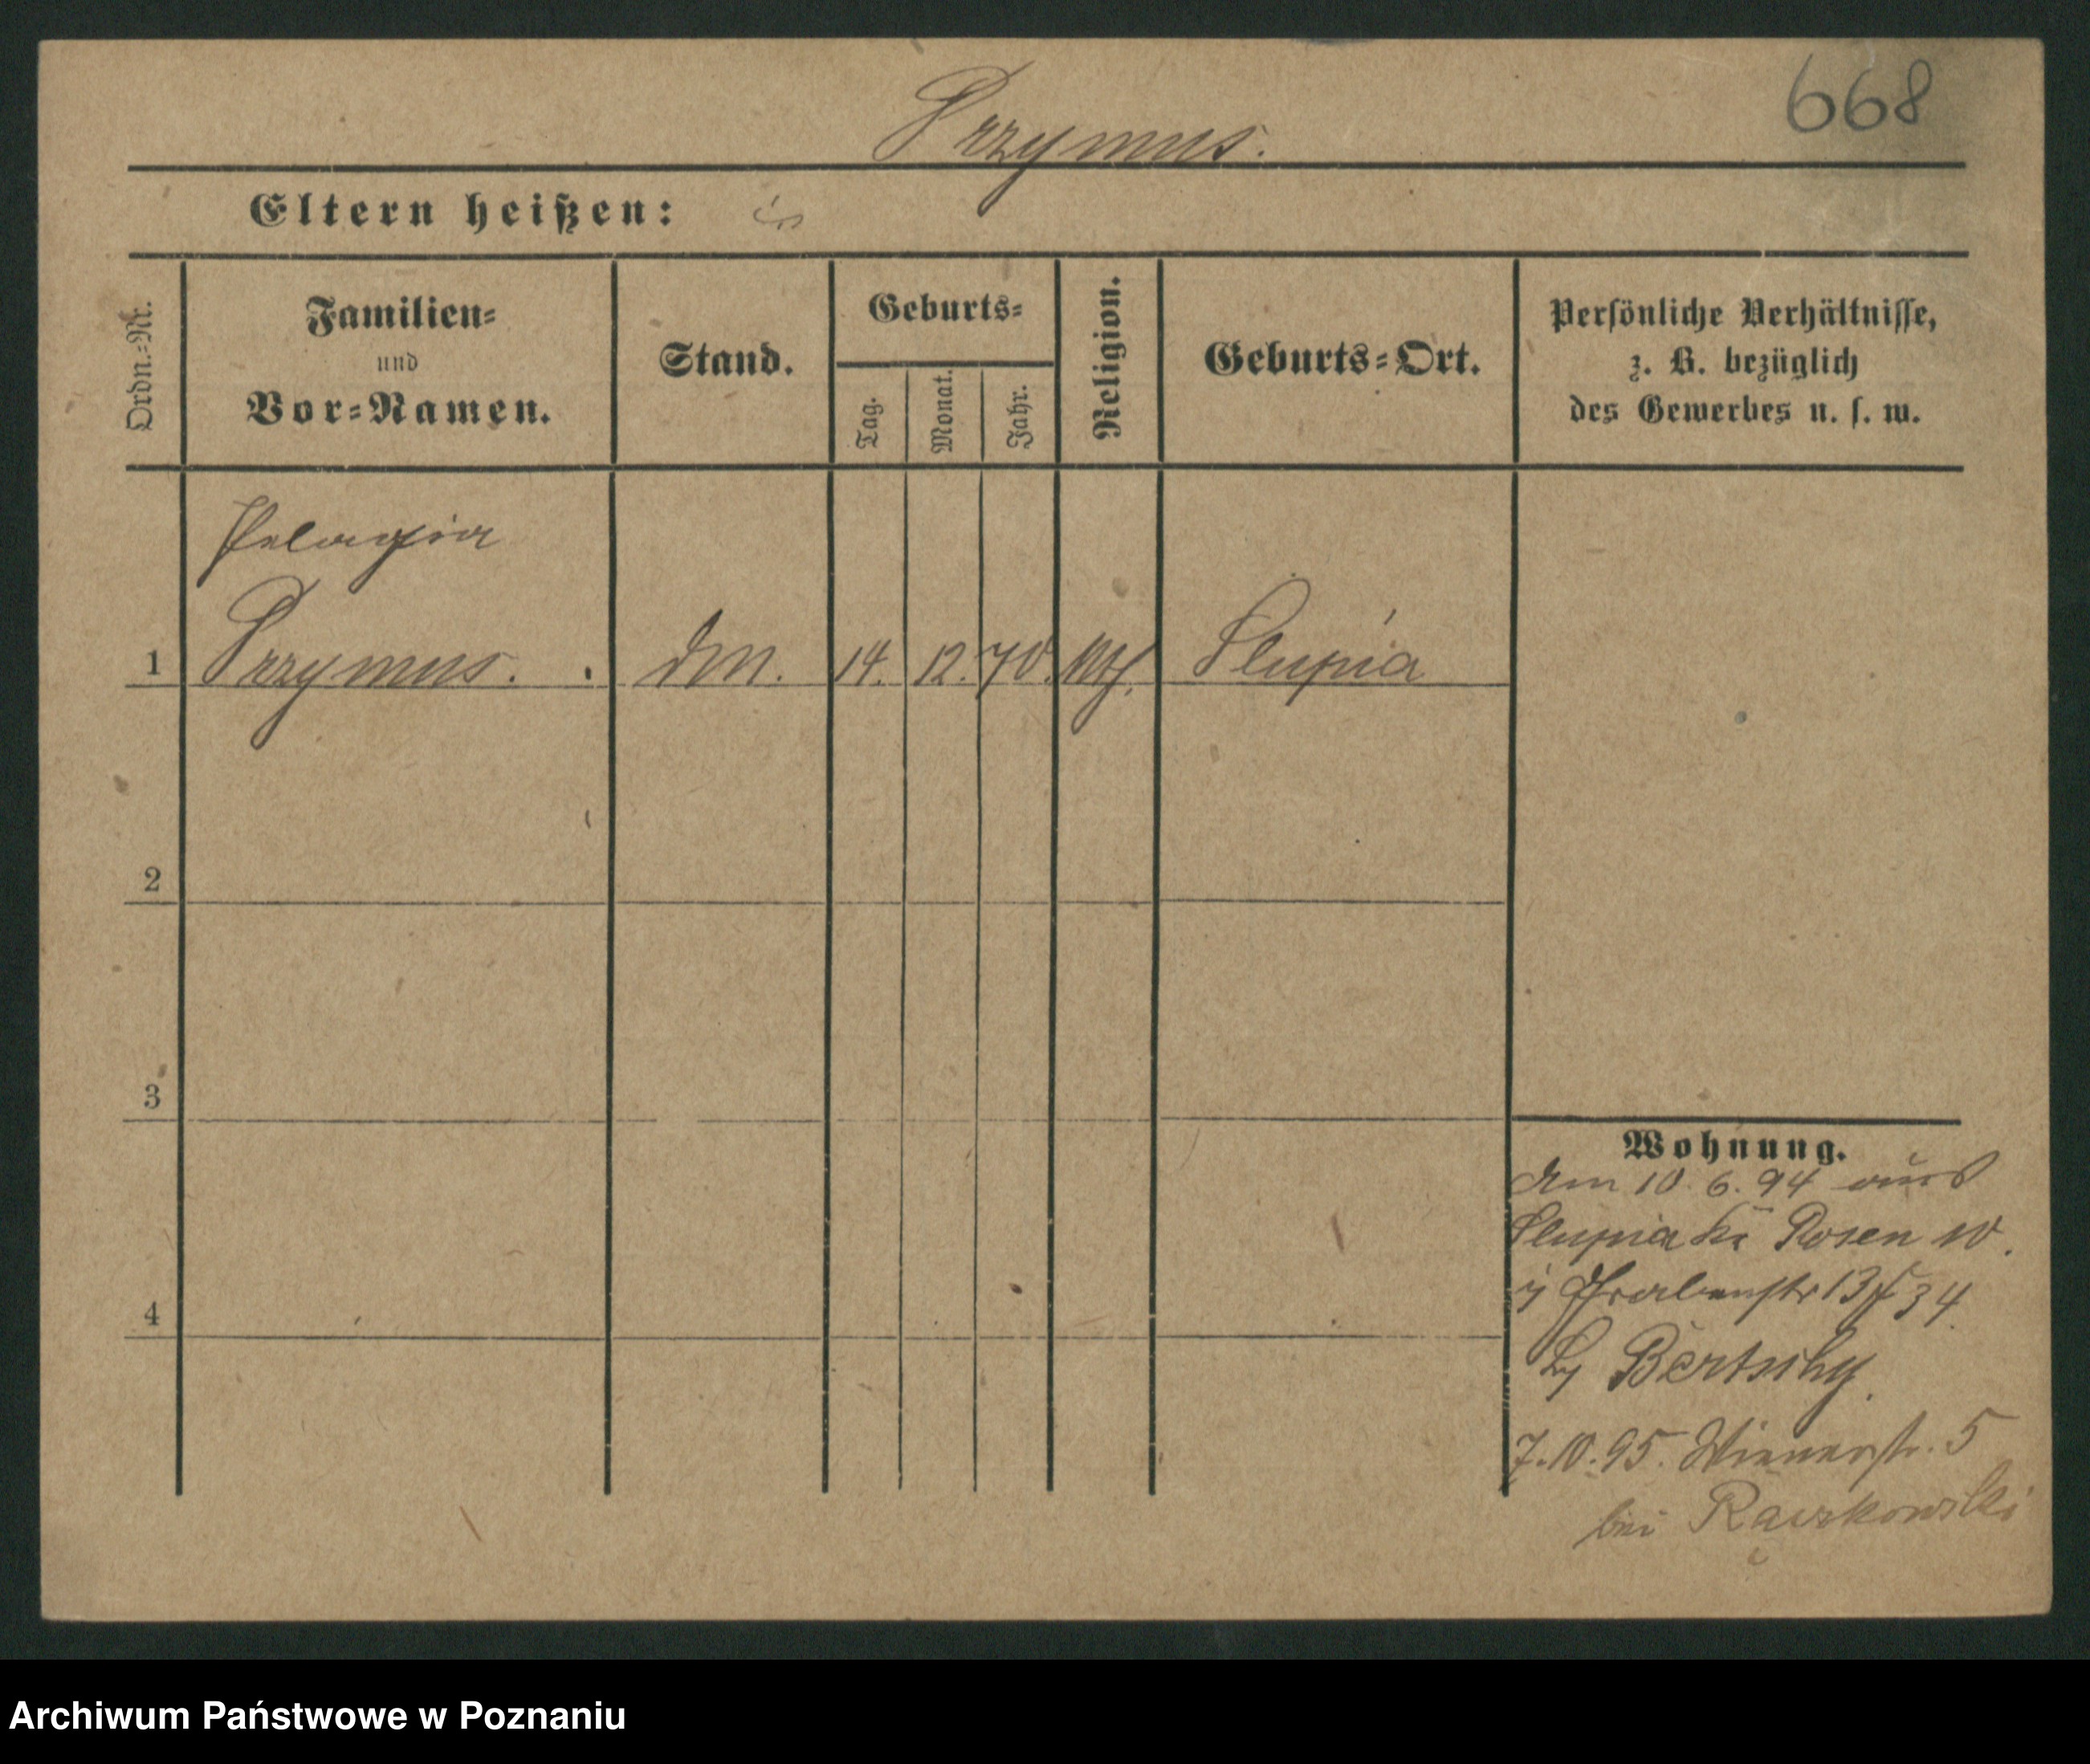 668
Przymus.
Eltern heißen:
Ordn.-Nr.
Familien-
und
Vor-Namen.
Stand.
Geburts-
Tag.
Monat.
Jahr.
Religion.
Geburts-Ort.
Persönliche Verhältnisse,
z. B. bezüglich
des Gewerbes u. s. w.
Pelagia
1 Przymus. 14. 12. 70. kth. Slupia
2
3
4
Wohnung.
Am 10. 6. 94 aus
Slupia Kr Posen W.
13 34
Bertschy
7.10.95. Wienerstr. 5
bei Raczkowski
Archiwum Państwowe w Poznaniu